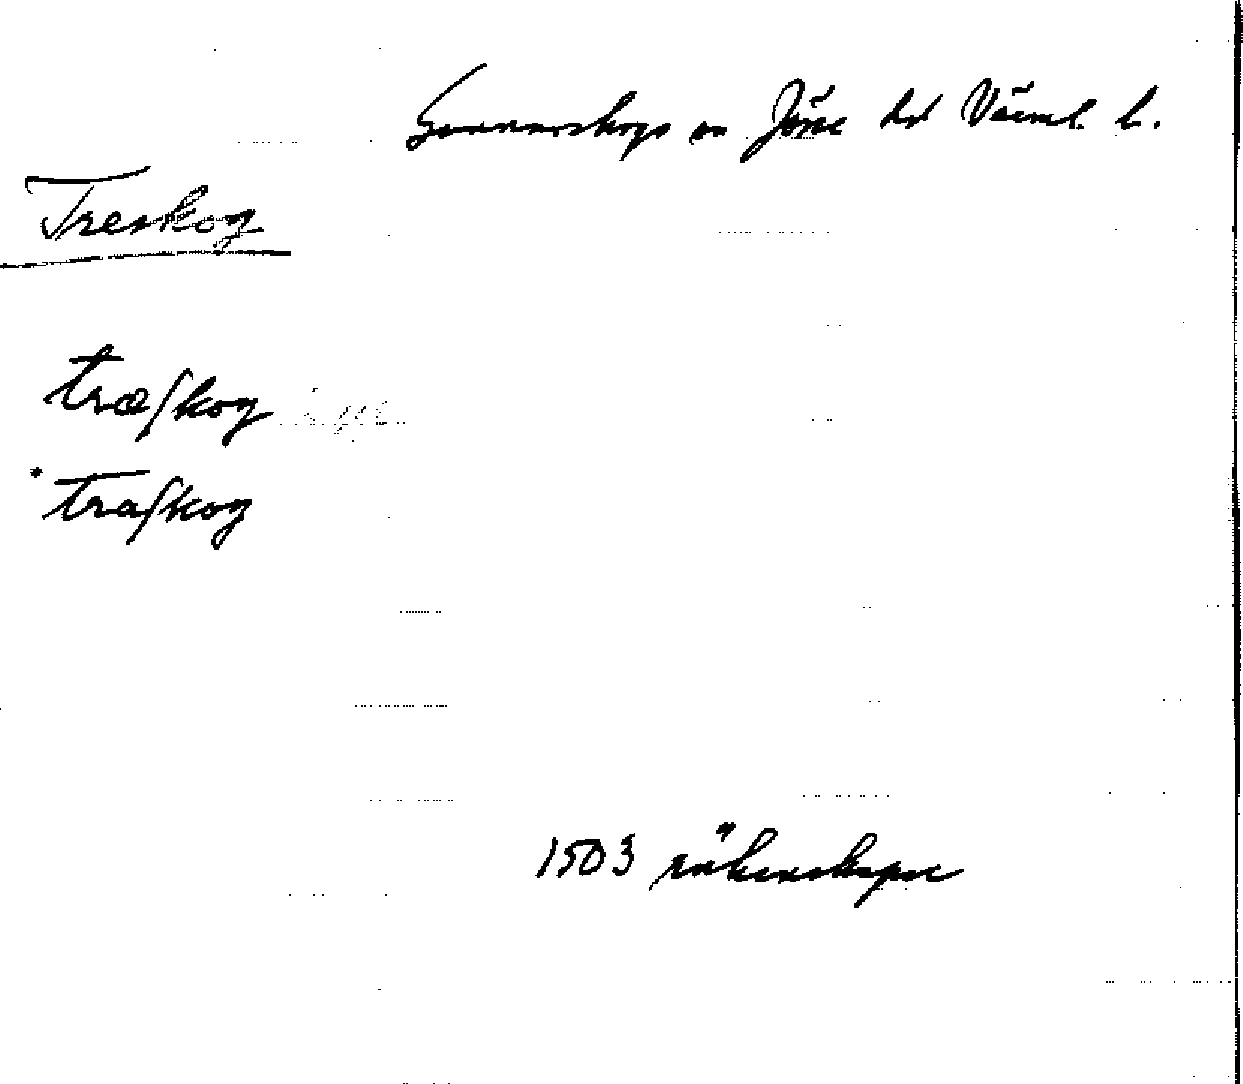 Gunnarskogs sn Jösse hd Värml. l.
Treskog
træſkog
* traſkog
1503 räkenskaper